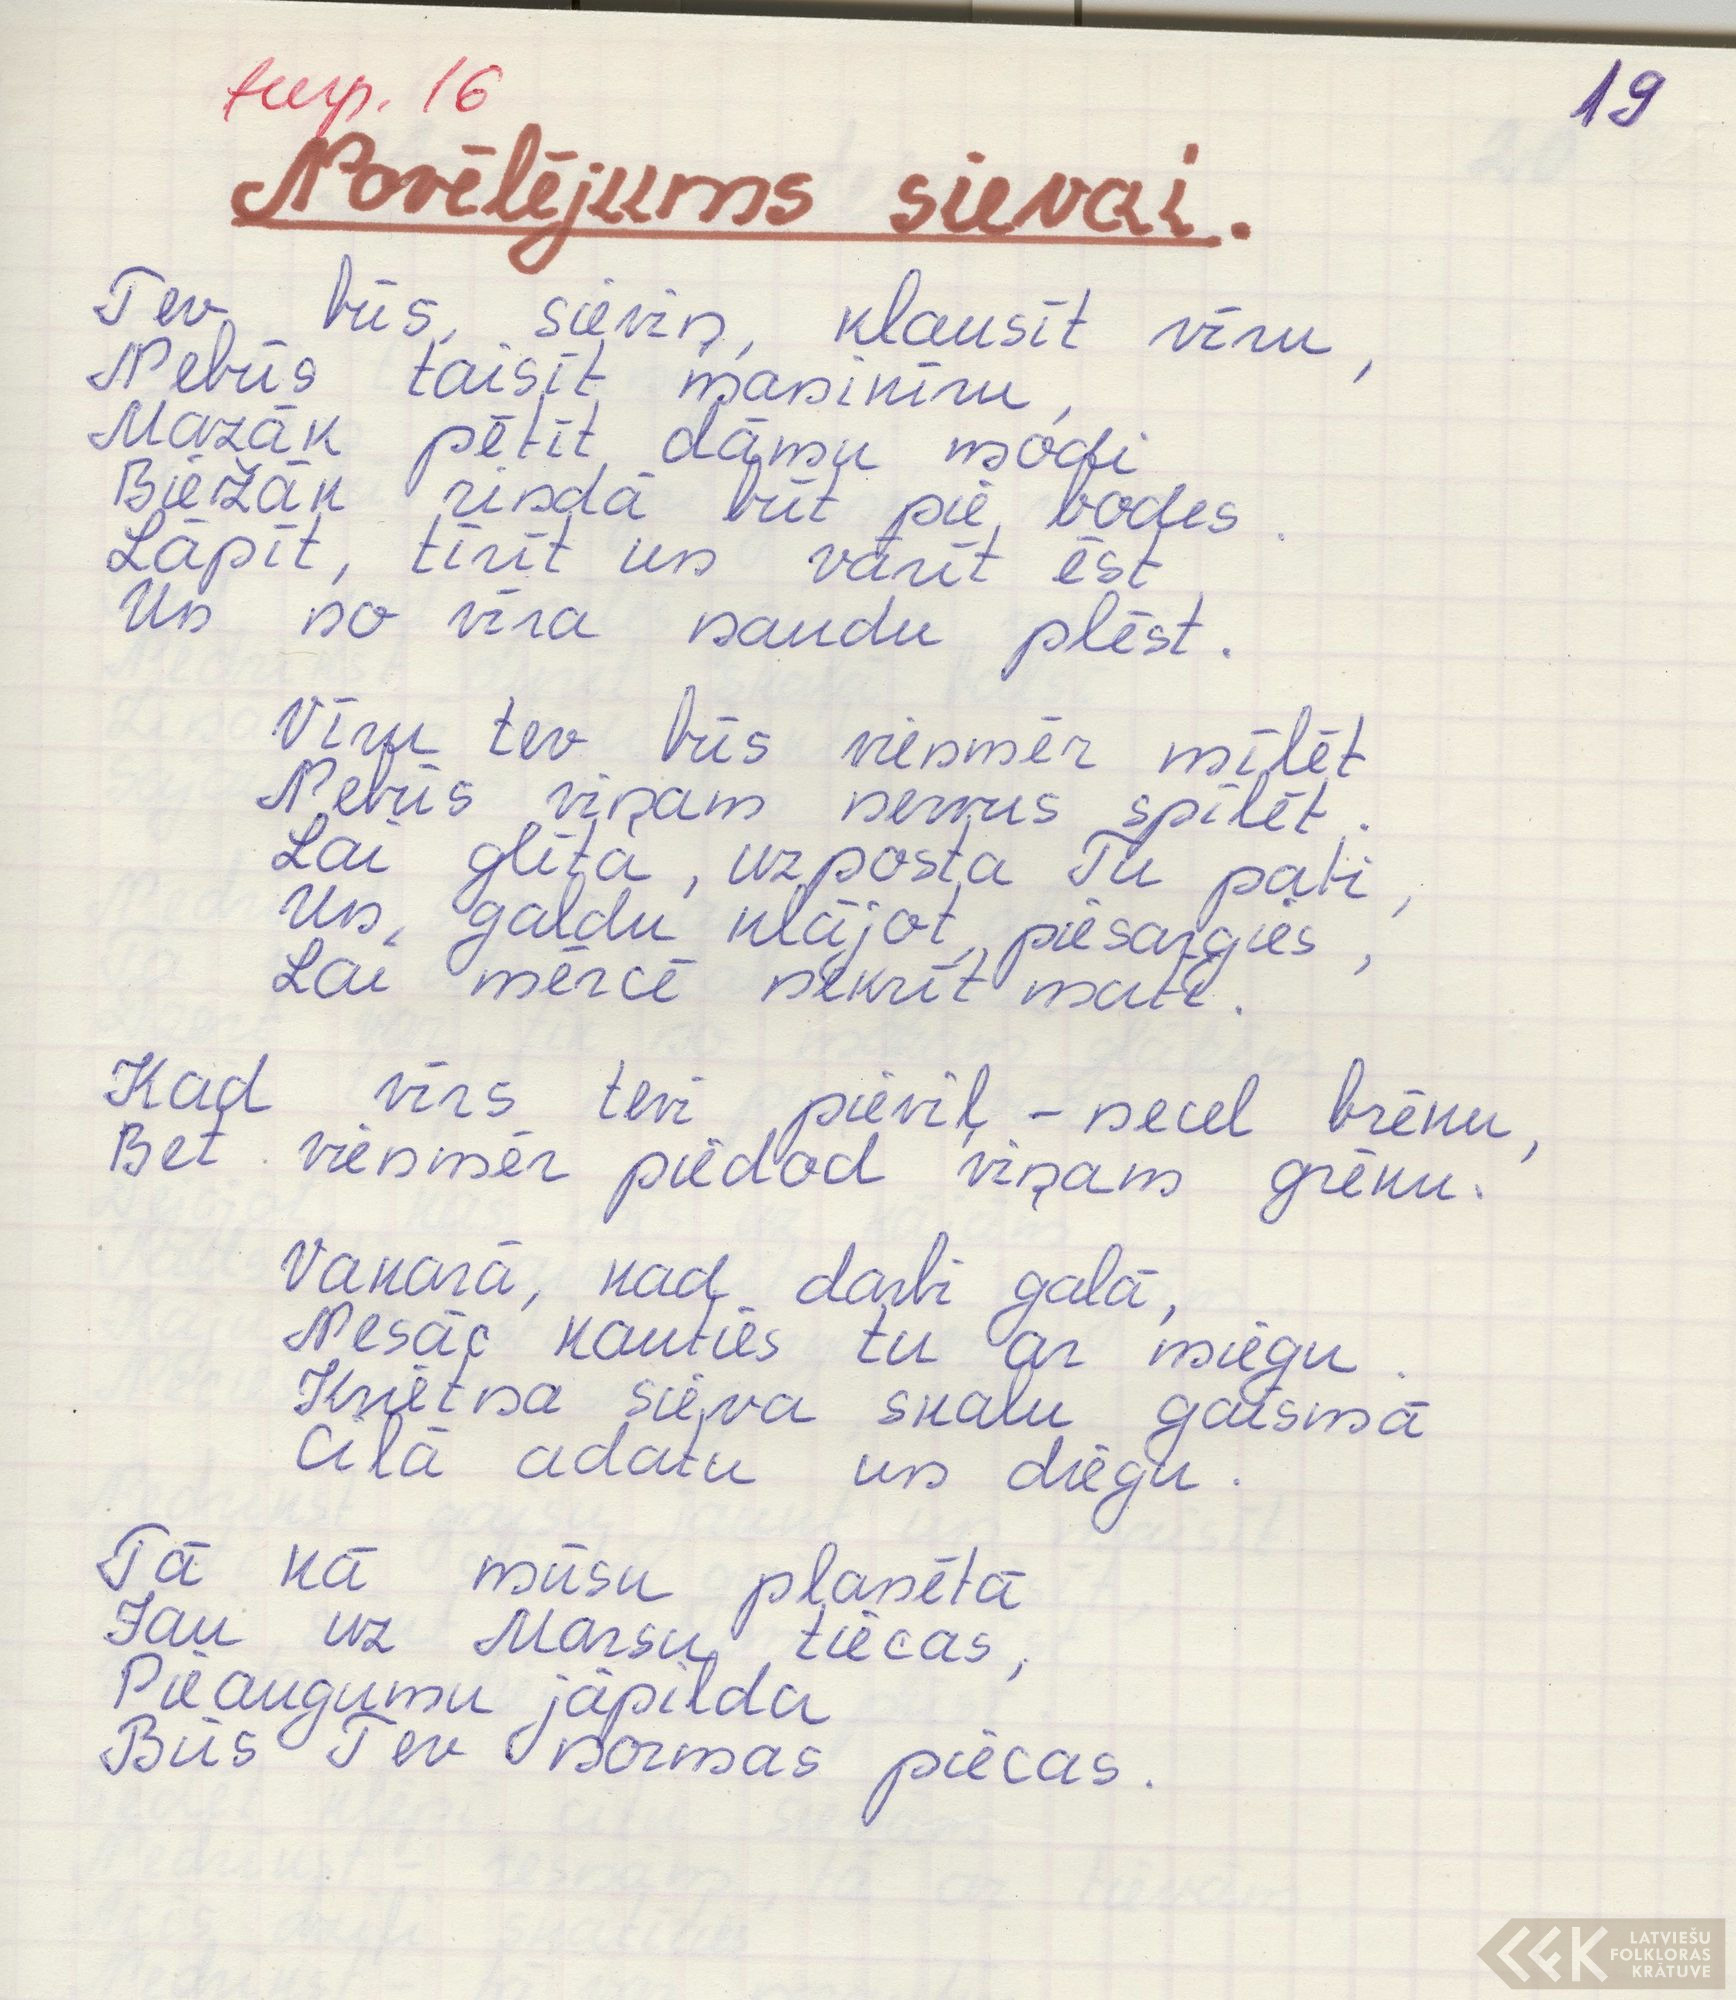 turp. 16
19
Novēlējums sievai.
Tev būs, sieviņ, klausīt vīru,
Nebūs taisīt manikīru,
Mazāk pētīt dāmu modi
Biežāk rindā būt pie bodes.
Lāpīt, tīrīt un vārīt ēst
Un no vīra naudu plēst.
Vīru tev būs vienmēr mīlēt
Nebūs viņam nervus spīlēt.
Lai glīta, uzposta Tu pati,
Un, galdu klājot, piesargies,
Lai mērcē nekrīt mati.
Kad vīrs tevi pieviļ - necel brēku,
Bet vienmēr piedod viņam grēku.
Vakarā, kad darbi galā,
Nesāc kauties tu ar miegu.
Krietna sieva skalu gaismā
Cilā adatu un diegu.
Tā kā mūsu planētā
Jau uz Marsu tiecas,
Pieaugumu jāpilda
Būs Tev normas piecas.
LATVIEŠU
FOLKLORAS
KRĀTUVE